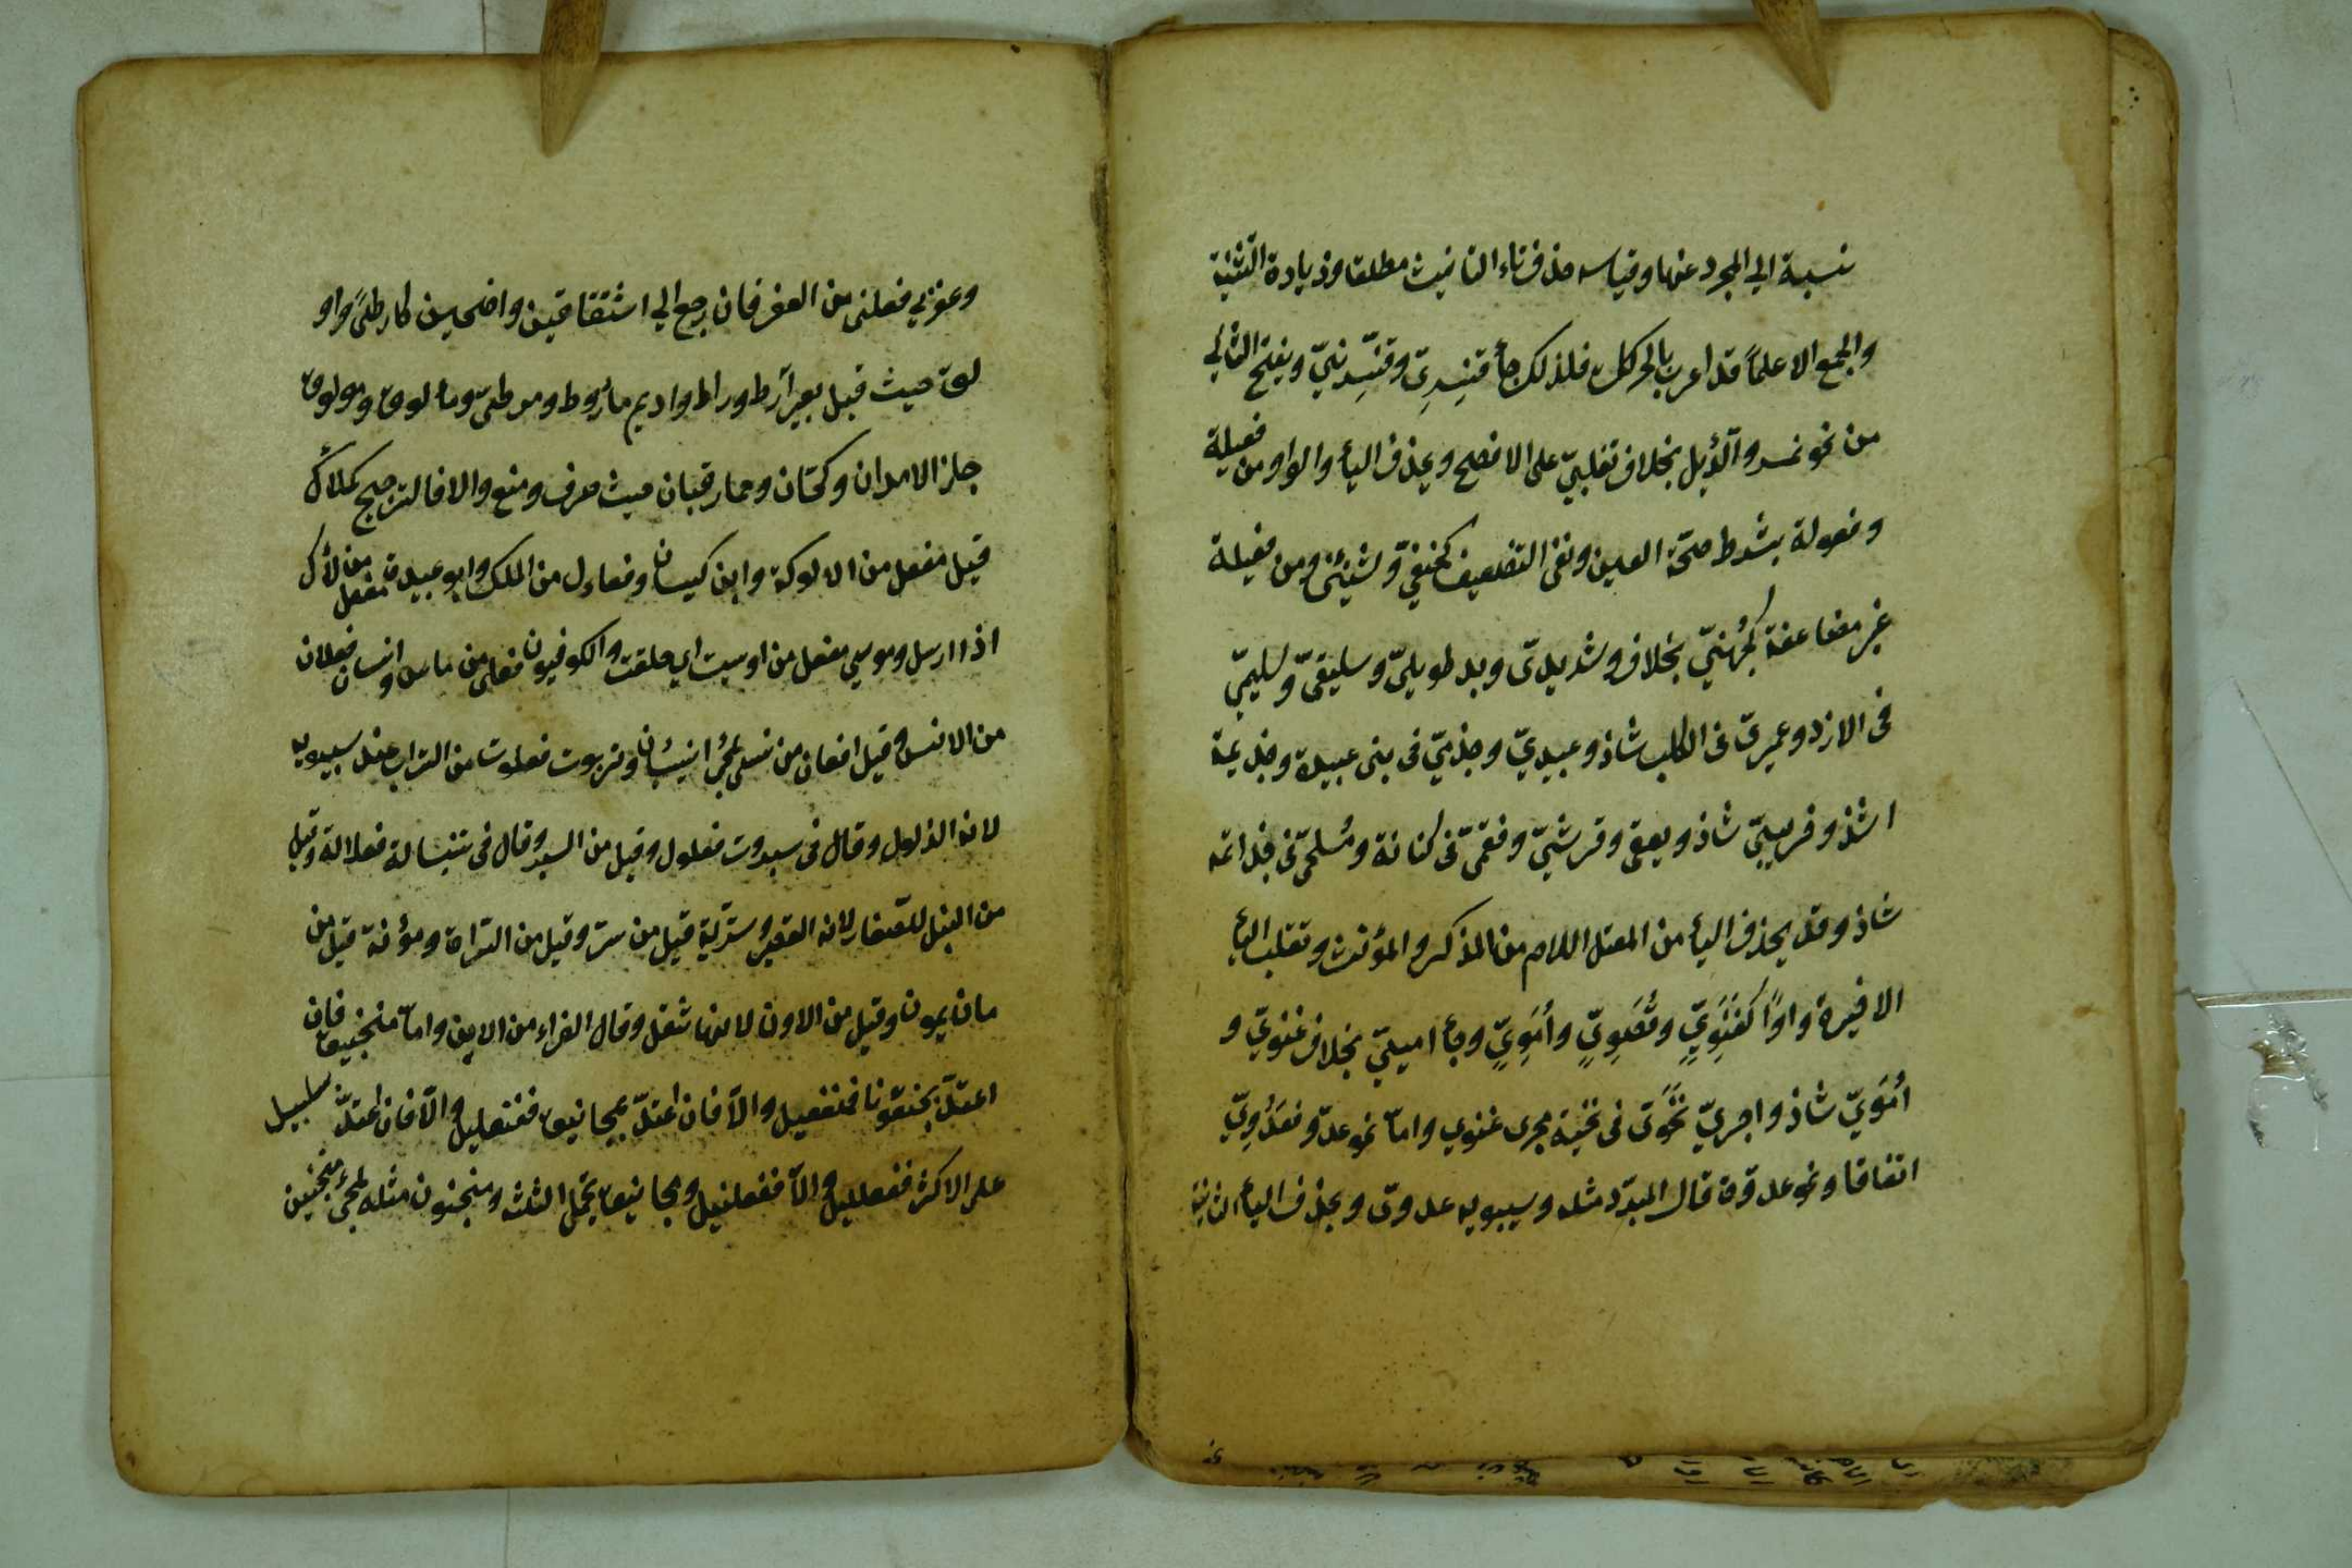 نسبة الي المجرد عنها وقياسه حذف تاء التانيث مطلقا وزيادة التثنية
والجمع الا علماً قد اعرب بالحركات فلذلك جأ قنسِرِىّ وقنّسِرينيّ ويفتح الثاني
من نحو نمر والدُّئِل بخلاف تغلبيّ على الافصح ويحذف اليأ والواو من فعيلة
وفعولة بشرط صحّة العين ونفى التضعيف كحنفيّ وشنَئىّ ومن فعيلة
غير مضاعفة كجُهنيّ بخلاف وشديدىّ وبد طويلىّ وسليقىّ وسليميّ
فى الازد وعميرىّ فى الكلب شاذ وعبيديّ وجذميّ فى بنى عبيدة وجذيمة
اشذ وخريبيّ شاذ وثقفى وقرشيّ وفقمىّ فى كنانة ومُلحىّ فى خزاعة
شاذ وقد يحذف اليأ من المعتل اللام من المذكر والمؤنث وتقلب اليأ
الاخيرة واوًا كغَنَوِيّ وقُصَوِيّ وأُمَوِيّ وجأ امييّ بخلاف غنويّ و
أمَوَيّ شاذ واجريّ تحَوىّ فى تحية مجرى غنوي وامّا نحو عدوّ فعَدُوِيّ
اتفاقا ونحو عدوّة قال المبرّد مثله وسيبويه عدوىّ ويحذف اليأ الثانية
وعزني فعلنى من العفر فان رجع الي اشتقاقين واضحين كارطىً واو
لق حيث قيل بعير آرط وراط واديم ماروط ومرطىّ ومألوق ومولوق
جاز الامران وكحسّان وحمار قبان حيث صرف ومنع والا فالترجيح كملأك
قيل مفعل من الالوكة وابن كيسان فعاءل من الملك وابو عبيدة مفعل من لأك
اذا ارسل وموسي مفعل من اوسيت اي حلقت والكوفيون فعلى من ماس وانسان فعلان
من الانس وقيل افعان من نسي لمجئ انيسيان وتربوت فعلوت من التراب عند سيبويه
لانه الذلول وقال فى سبروت فعلول وقيل من السبر وقال فى تنبالة فعلالة وقيل
من النبل للصّغار لانه القصير وسرّيّة قيل من سرّ وقيل من السراة ومؤنة قيل من
مان يمون وقيل من الاون لانها ثقل وقال الفراء من الاين وامّا منجنيق فان
اعتدّ بجنقونا فمنفعيل والّا فان اعتدّ بمجانيق ففنعليل والّا فان اعتدّ بسلسبيل
على الاكثر ففعلليل والّا ففعلنيل ومجانيق يحتمل الثلثة ومنجنون مثله لمجئ منجنين